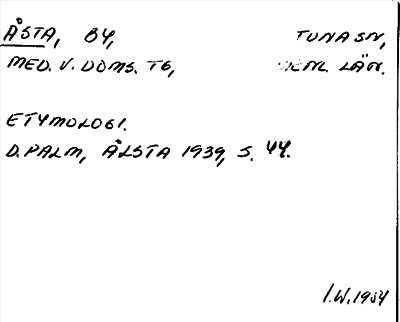 ÅSTA, BY, TUNA SN,
MED. V. DOMS. TG, LÄN.
ETYMOLOGI.
D. PALM, ÅLSTA 1939, S. 44.
I.W. 1954